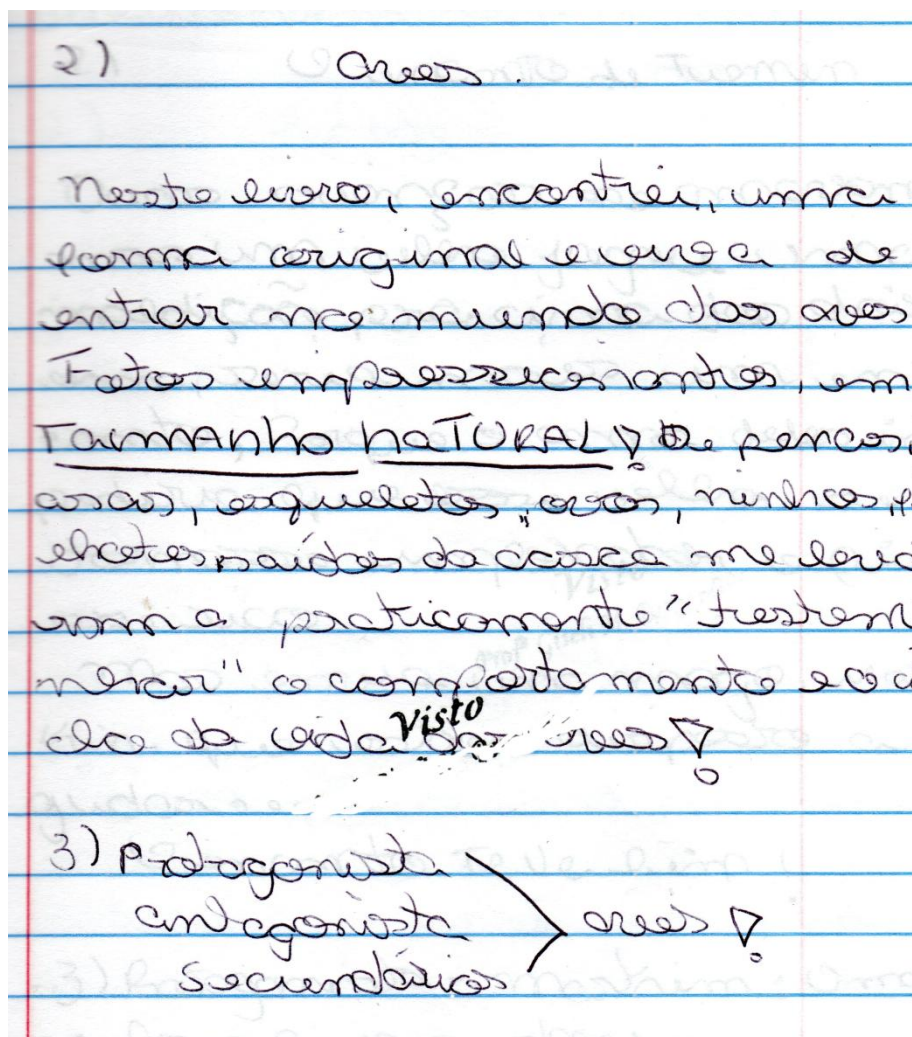 2) Aves.
Neste livro, encontrei, uma
forma original e viva de
entrar no mundo das aves
Fotos impressionantes, em
TAMANHO NATURAL! De penas,
asas, esqueletos, ovos, ninhos,
saídos da casca me leva
ram a praticamente "testem
nhar" o comportamento e o ci
clo da vida das aves!
Visto
3) Protagonista
antagonista
Secundários
aves!